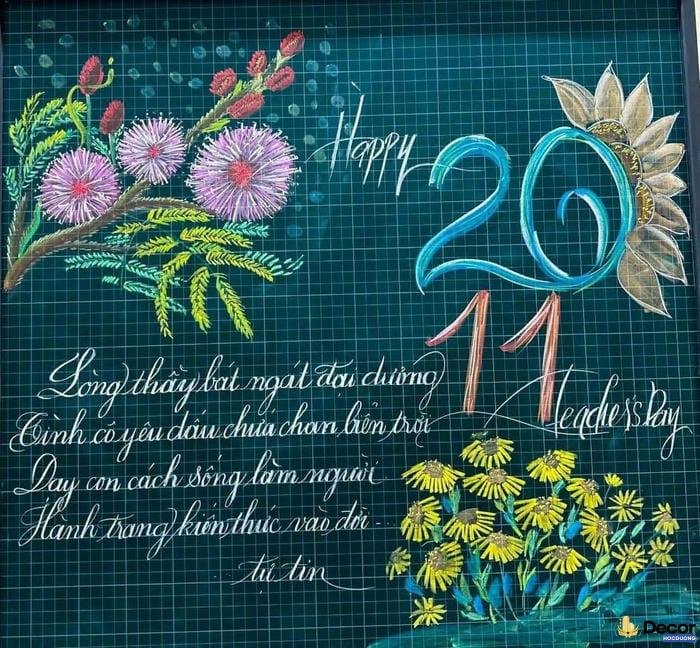 Happy 20
11
Teacher's Day
Lòng thầy bát ngát đại dương
Tình cô yêu dấu chứa chan biển trời
Dạy con cách sống làm người
Hành trang kiến thức vào đời
tự tin
Decor
HOCDUONG